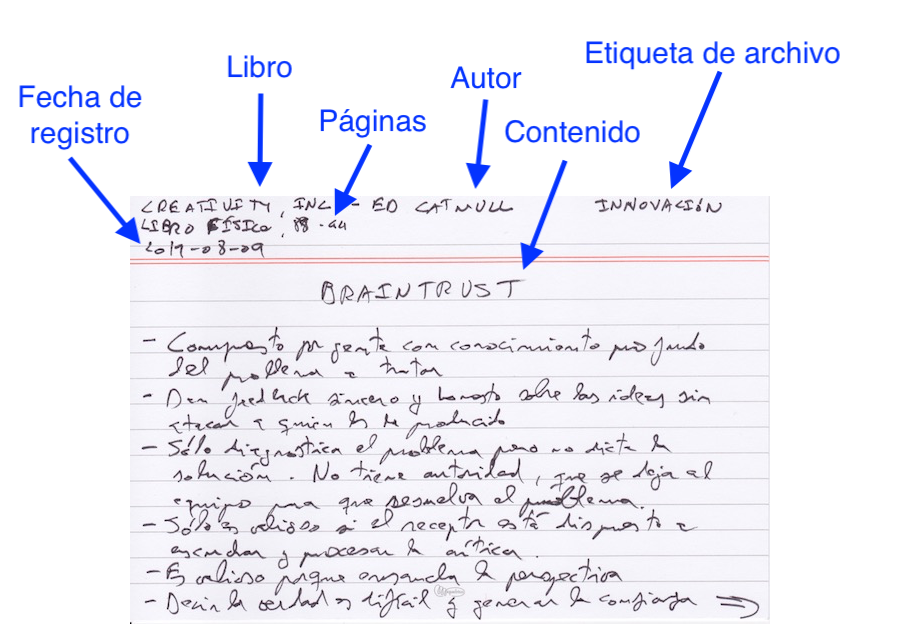 Etiqueta de archivo
Libro
Autor
Fecha de
registro
Páginas
Contenido
CREATIVITY, INC - ED CATMULL INNOVACIÓN
LIBRO FÍSICO, 88-94
2019-08-09
BRAINTRUST
- Compuesto por gente con conocimiento profundo
del problema a tratar
- Dan feedback sincero y honesto sobre las ideas sin
atacar a quien las ha producido
- Sólo diagnostica el problema pero no dicta la
solución. No tiene autoridad, que se deja al
equipo para que resuelva el problema.
- Sólo es valioso si el receptor está dispuesto a
escuchar y procesar la crítica.
- Es valioso porque ensancha la perspectiva
- Decir la verdad es difícil y generar la confianza